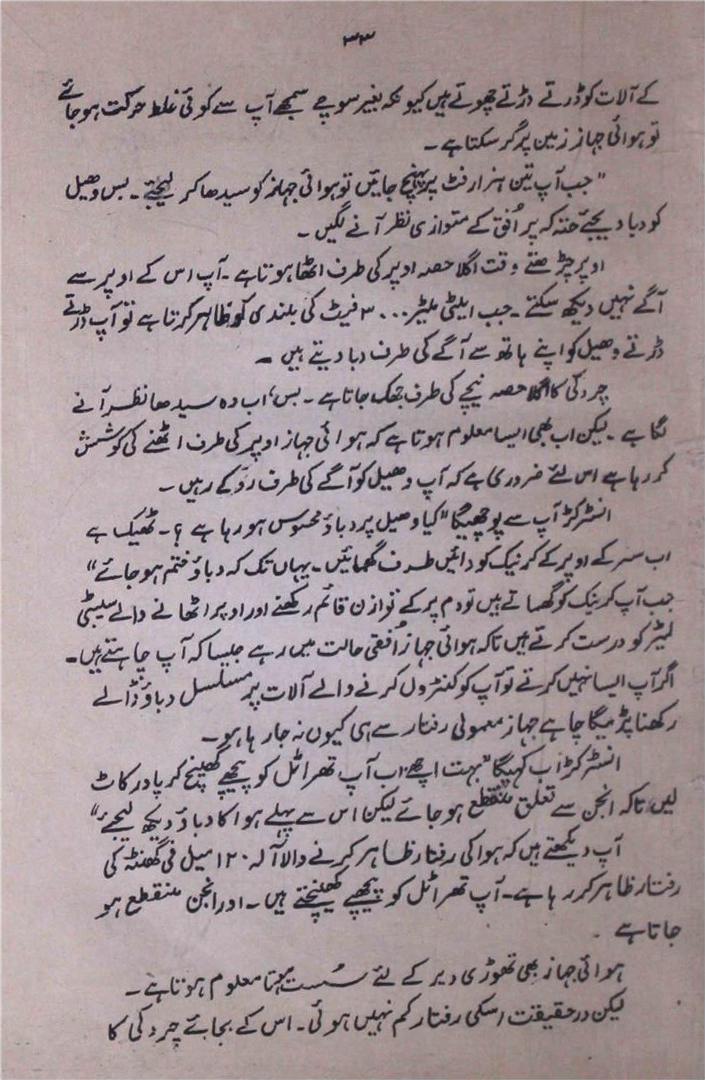 ۳۳
کے آلات کو ڈرتے ڈرتے چھوتے ہیں کیونکہ بغیر سوچے سمجھے آپ سے کوئی غلط حرکت ہو جائے
تو ہوائی جہاز زمین پر گر سکتا ہے۔
"جب آپ تین ہزار فٹ پر پہنچ جائیں تو ہوائی جہاز کو سیدھا کر لیجئے۔ بس وھیل
کو دبا دیجئے حتہ کہ پر اُفق کے متوازی نظر آنے لگیں۔
اوپر چڑھتے وقت اگلا حصہ اوپر کی طرف اٹھا ہوتا ہے۔ آپ اس کے اوپر سے
آگے نہیں دیکھ سکتے۔ جب ایلٹی میٹر ۳۰۰۰ فیٹ کی بلندی کو ظاہر کرتا ہے تو آپ ڈرتے
ڈرتے وھیل کو اپنے ہاتھ سے آگے کی طرف دبا دیتے ہیں۔
چرد کی کا اگلا حصہ نیچے کی طرف جھک جاتا ہے۔ بس، اب وہ سیدھا نظر آنے
لگا ہے۔ لیکن اب بھی ایسا معلوم ہوتا ہے کہ ہوائی جہاز اوپر کی طرف اٹھنے کی کوشش
کر رہا ہے اس لئے ضروری ہے کہ آپ وھیل کو آگے کی طرف روکے رہیں۔
انسٹرکٹر آپ سے پوچھیگا "کیا وھیل پر دباؤ محسوس ہو رہا ہے؟۔ ٹھیک ہے
اب سر کے اوپر کے کرنیک کو دائیں طرف گھمائیں۔ یہاں تک کہ دباؤ ختم ہو جائے"
جب آپ کرینک کو گھماتے ہیں تو دم پر کے توازن قائم رکھنے اور اوپر اٹھانے والے سیٹبی
لیٹر کو درست کرتے ہیں تاکہ ہوائی جہاز اُفقی حالت میں رہے جیسا کہ آپ چاہتے ہیں۔
اگر آپ ایسا نہیں کرتے تو آپ کو کنٹرول کرنے والے آلات پر مسلسل دباؤ ڈالے
رکھنا پڑھیگا چاہے جہاز معمولی رفتار سے ہی کیوں نہ جا رہا ہو۔
انسٹرکٹر اب کہیگا "بہت اچھے اب آپ تھراٹل کو پیچھے کھینچ کر پاور کاٹ
لیں تاکہ انجن سے تعلق منقطع ہو جائے لیکن اس سے پہلے ہوا کا دباؤ دیکھ لیجئے"
آپ دیکھتے ہیں کہ ہوا کی رفتار ظاہر کرنے والا آلہ ۱۲۰ میل فی گھنٹہ کی
رفتار ظاہر کر رہا ہے۔ آپ تھراٹل کو پیچھے کھینچتے ہیں۔ اور انجن منقطع ہو
جاتا ہے۔
ہوائی جہاز بھی تھوڑی دیر کے لئے سُست ہوتا معلوم ہوتا ہے۔
لیکن درحقیقت اسکی رفتار کم نہیں ہوئی۔ اس کے بجائے چرد کی کا